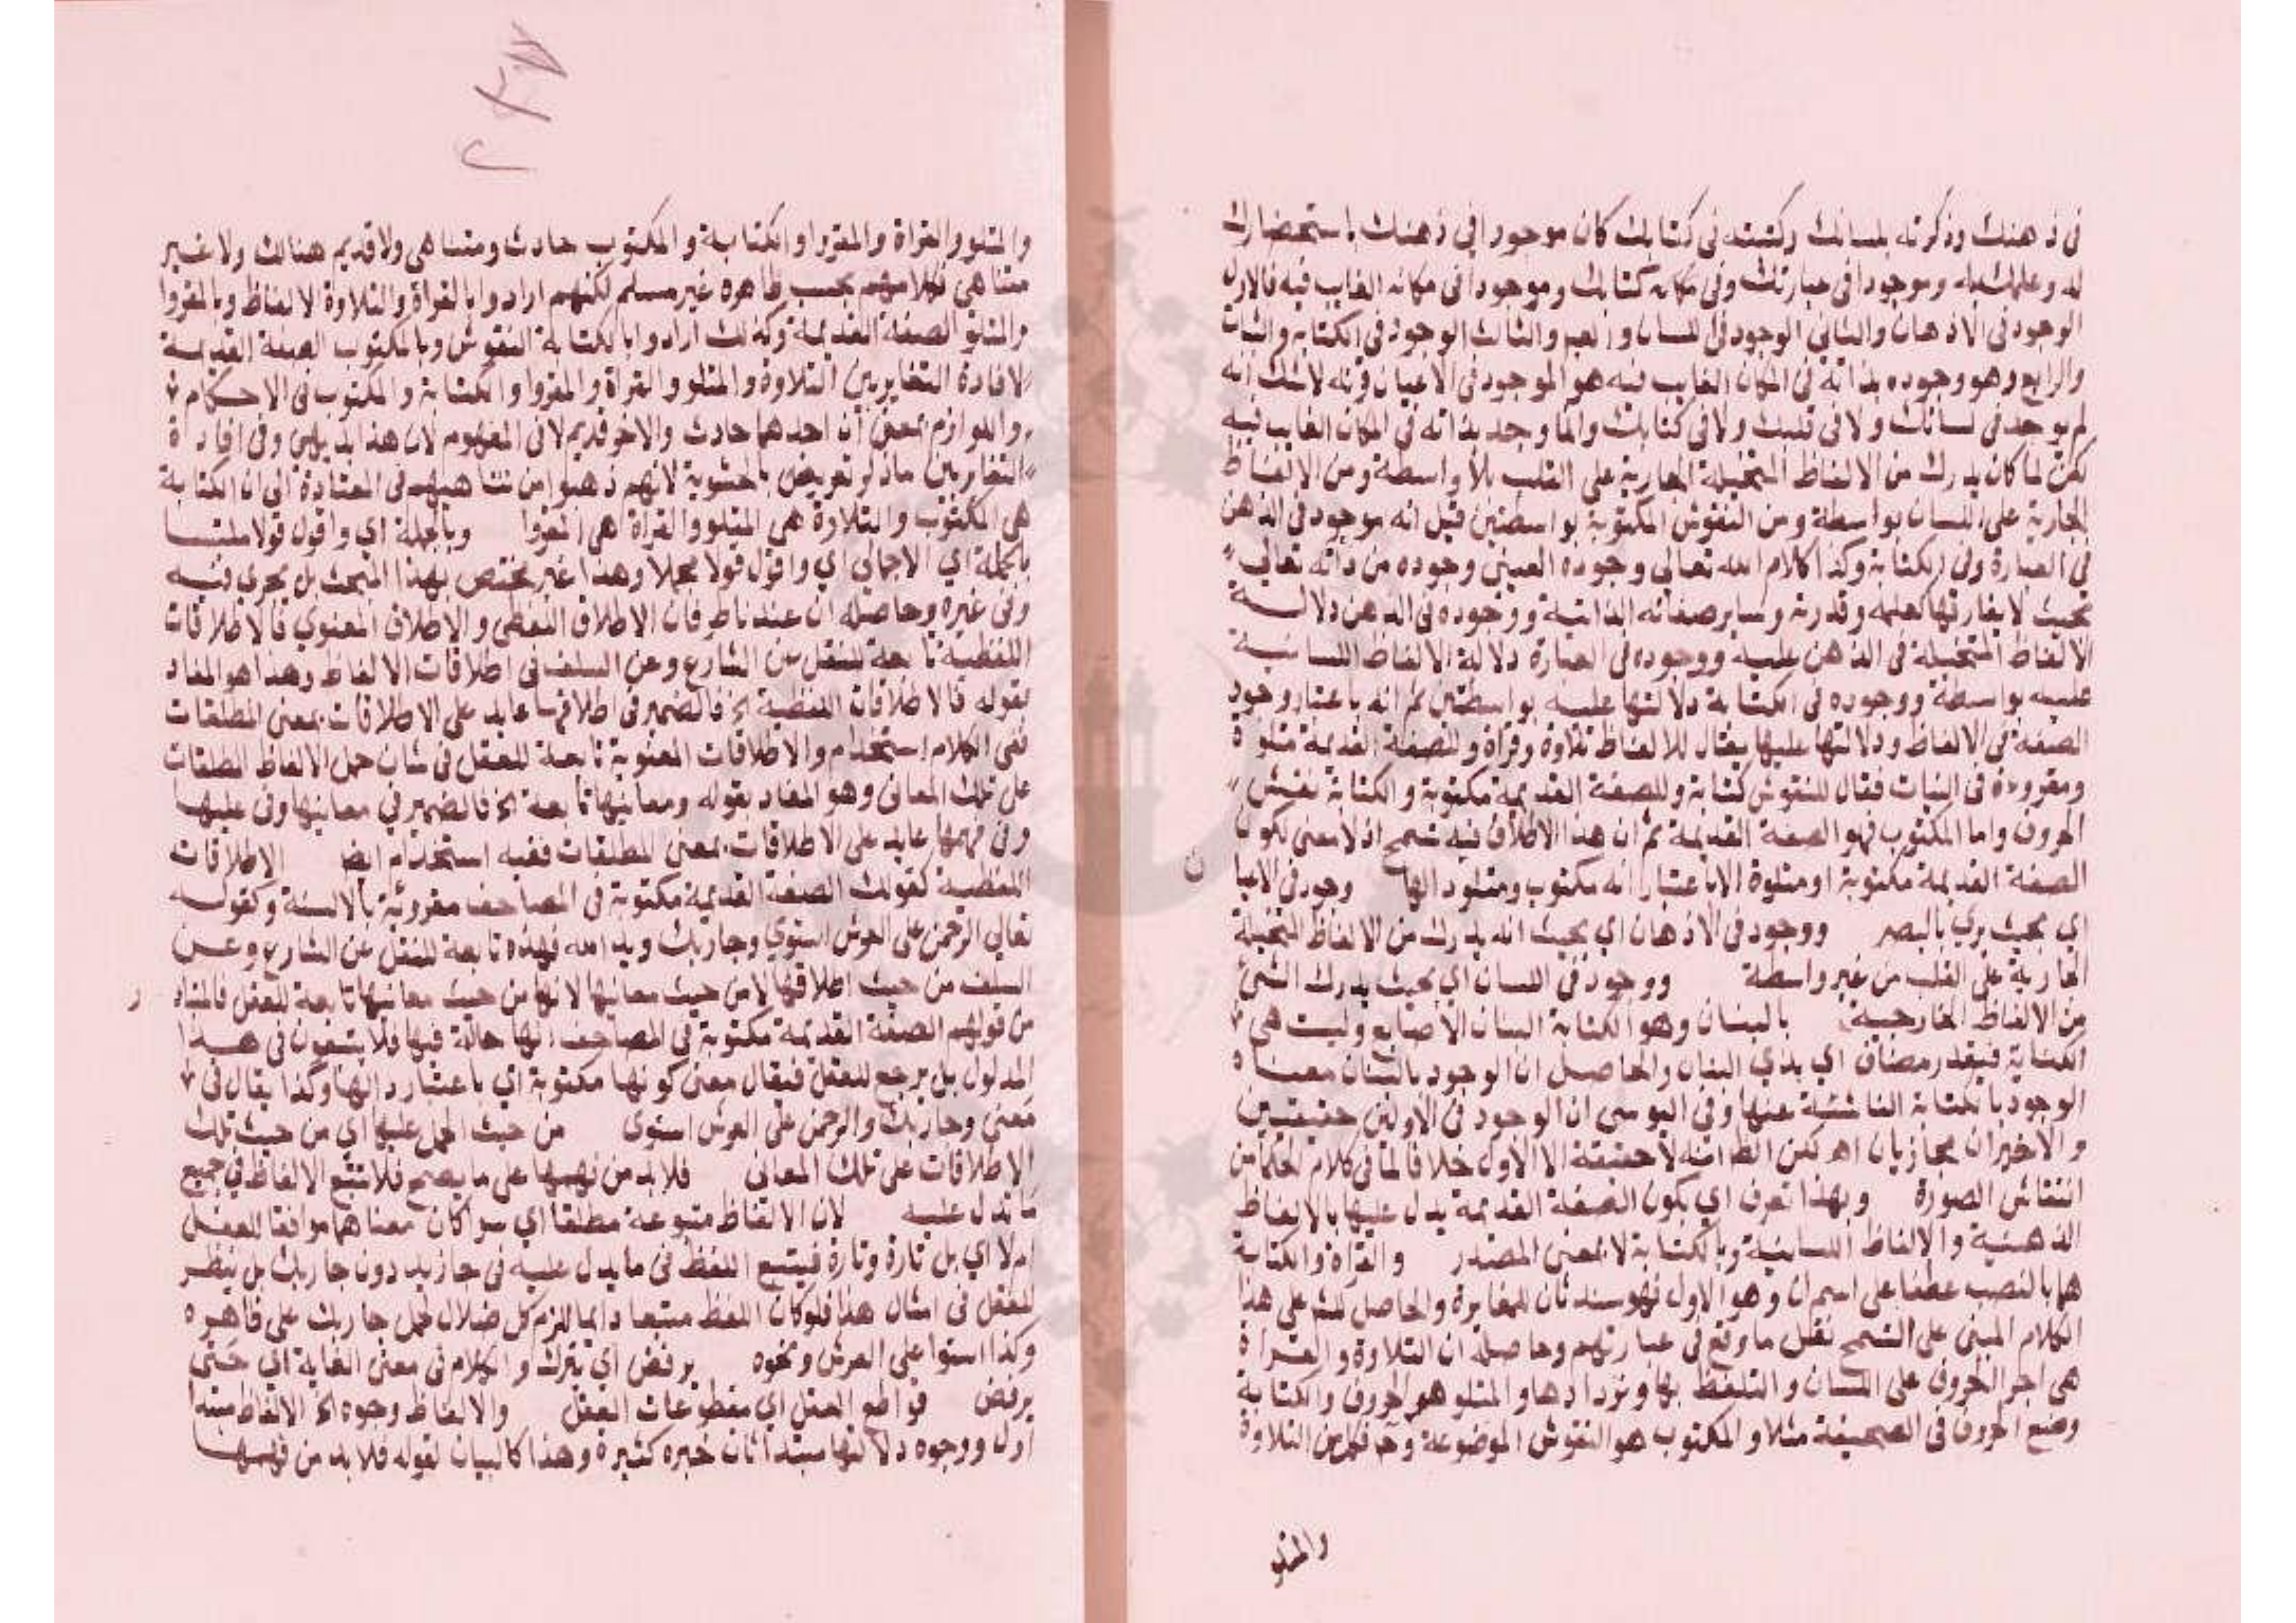 في ذهنك وذكرته بلسانك وكتبته في كتابك كان موجودا في ذهنك باستحضارك
له وعلمك به وموجودا في عبارتك وفي مكان كتابك وموجودا في مكانه الغايب فيه فالاول
الوجود في الاذهان والثاني الوجود في اللسان والثالث الوجود في الكتابة والبنان
والرابع وهو وجوده بذاته في المكان الغايب فيه هو الموجود في الاعيان لاشك انه
لم يوجد في لسانك ولا في قلبك ولا في كتابك وانما وجد بذاته في المكان الغايب فيه
لكن لما كان يدرك من الالفاظ المتخيلة الجارية على القلب بلا واسطة ومن الالفاظ
الجارية على اللسان بواسطة ومن النقوش المكتوبة بواسطتين قيل انه موجود في الذهن
في العبارة وفي الكتابة وكذا كلام الله تعالى وجوده العيني وجوده من ذاته تعالى
بحيث لا يفارقها كعلمه وقدرته وساير صفاته الذاتية ووجوده في الذهن دلالة
الالفاظ المتخيلة في الذهن عليه ووجوده في العبارة دلالة الالفاظ اللسانية
عليه بواسطة ووجوده في الكتابة دلالتها عليه بواسطتين ثم انه باعتبار وجود
الصفة في الالفاظ ودلالتها عليها يقال للالفاظ تلاوة وقراة وللصفة القديمة متلوة
ومقروءة في البنات فقال للنقوش كتابة وللصفة القديمة مكتوبة والكتابة نقش
الحروف واما المكتوب فهو الصفة القديمة ثم ان هذا الاطلاق فيه تسمح اذ لا معنى لكون
الصفة القديمة مكتوبة او متلوة الا باعتبار انه مكتوب ومتلو دالها وجود في الاعيا
ن
اي بحيث يري بالبصر ووجود في الاذهان اي بحيث انه يدرك من الالفاظ المتخيلة
الجارية على القلب من غير واسطة ووجود في اللسان اي بحيث يدرك الشئ
من الالفاظ الخارجية بالبنان وهو الكتابة البنان الاصابع وليست هي
الكتابة فيقدر مضاف اي بذي البنان والحاصل ان الوجود بالبنان معناه
الوجود بالكتابة الناشئة عنها وفي اليوسي ان الوجود في الاولين حقيقيين
والاخيران مجازيان اهـ لكن الظ انه لا حقيقة الا الاول خلافا لما في كلام الحكما من
انتقاش الصورة وبهذا تعرف اي بكون الصفة القديمة يدل عليها بالالفاظ
الذهنية والالفاظ اللسانية وبالكتابة لا بمعنى المصدر والقراة والكتابة
هما بالنصب عطفا على اسم ان وهو الاول فهو سند ثان للمغايرة والحاصل للشر على هذا
الكلام المبني على التسمح نقل ما وقع في عبارتهم وحاصله ان التلاوة والقراة
هي اجر الحروف على اللسان والتلفظ بها وتردادها والمتلو هو الحروف والكتابة
وضع الحروف في الصحيفة مثلا والمكتوب هو النقوش الموضوعة وح فكل من التلاوة
والمتلو
والمتلو والقراة والمقروا والكتابة والمكتوب حادث ومتناهي ولا قديم هنالك ولا غير
متناهي فكلامهم بحسب ظاهره غير مسلم لكنهم ارادوا بالقراة والتلاوة الالفاظ وبالمقروا
والمتلو الصفة القديمة وكذلك ارادوا بالكتابة النقوش وبالمكتوب الصفة القديمة
لافادة التغاير بين التلاوة والمتلو والقراة والمقروا والكتابة والمكتوب في الاحكام
واللوازم بمعنى ان احدهما حادث والاخر قديم لا في المفهوم لان هذا بديهي وفي افادة
التغاير بين ما ذكر تعريض بالحشوية لانهم ذهبوا من تناهيهم في العتادة الى ان الكتابة
هي المكتوب والتلاوة هي المتلو والقراة هي المقروا وبالجملة اي واقول قولا ملتبسا
بالجملة اي الاجمالي اي واقول قولا مجملا وهذا غير مختص بهذا المبحث بل يجري فيه
وفي غيره وحاصله ان عندنا طرفان الاطلاق اللفظي والاطلاق المعنوي فالاطلاقات
اللفظية تابعة للنقل عن الشارع وعن السلف في اطلاقات الالفاظ وهذا هو المفاد
بقوله فالاطلاقات اللفظية الخ فالضمير في اطلاقها عايد على الاطلاقات بمعنى المطلقات
ففي الكلام استخدام والاطلاقات المعنوية تابعة للعقل في شان حمل الالفاظ المطلقات
على تلك المعاني وهو المفاد بقوله ومعانيها تابعة الخ فالضمير في معانيها وفي عليها
وفي فهمها عايد على الاطلاقات بمعنى المطلقات ففيه استخدام ايضا الاطلاقات
اللفظية كقولك الصفة القديمة مكتوبة في المصاحف مقروئة بالالسنة وكقوله
تعالي الرحمن على العرش استوي وجا ربك ويد الله فهذه تابعة للنقل عن الشارع وعن
السلف من حيث اطلاقها لا من حيث معانيها لانها من حيث معانيها تابعة للعقل فالمتباد
ر
من قولهم الصفة القديمة مكتوبة في المصاحف انها حالة فيها فلا يتبعون في هذا
المدلول بل يرجع للعقل فيقال معنى كونها مكتوبة اي باعتبار دالها وكذا يقال في
معنى وجا ربك والرحمن على العرش استوى من حيث الحمل عليها اي من حيث تلك
الاطلاقات على تلك المعاني فلا بد من فهمها على ما يصح فلا تتبع الالفاظ في جميع
ما تدل عليه لان الالفاظ متبوعة مطلقا اي سوا كان معناها موافقا للعقل
ام لا اي بل تارة وتارة فيتبع اللفظ في ما يدل عليه في جا زيد دون جا ربك بل ينظر
للعقل في امثال هذا فلو كان اللفظ متبعا دايما للزم كل ضلال لحمل جا ربك على ظاهره
وكذا استوا على العرش ونحوه يرفض اي يترك والكلام في معنى الغاية اي حتى
يرفض قواطع العقل اي مقطوعات العقل والالفاظ وجوه الخ الالفاظ مبتدا
اول ووجوه دلالتها مبتدا ثان خبره كثيرة وهذا كالبيان لقوله فلا بد من فهمها